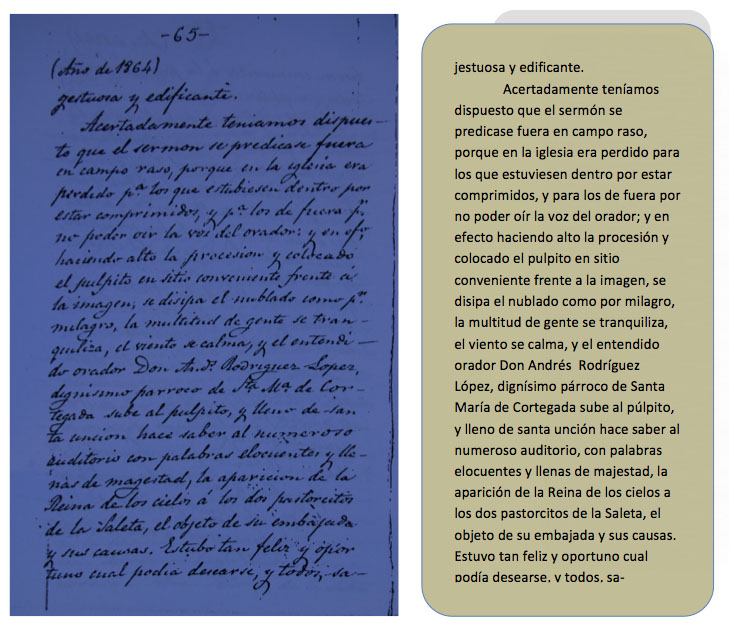 -65-
(Año de 1864)
gestuosa y edificante.
Acertadamente teniamos dispues-
to que el sermon se predicase fuera
en campo raso, porque en la iglesia era
perdido pª los que estubiesen dentro por
estar comprimidos, y pª los de fuera pr.
no poder oir la voz del orador: y en efo,
haciendo alto la procesion y colocado
el pulpito en sitio conveniente frente á
la imagen, se disipa el nublado como pr.
milagro, la multitud de gente se tran-
quiliza, el viento se calma, y el entendi-
do orador Don Andˢ Rodriguez Lopez,
dignisimo parroco de Stª Mª de Cor-
tegada sube al pulpito, y lleno de san-
ta uncion hace saber al numeroso
auditorio con palabras elocuentes y lle-
nas de magestad, la aparicion de la
Reina de los cielos á los dos pastorcitos
de la Saleta, el objeto de su embajada
y sus causas. Estubo tan feliz y opor-
tuno cual podia desearse, y todos, sa-
jestuosa y edificante.
Acertadamente teníamos
dispuesto que el sermón se
predicase fuera en campo raso,
porque en la iglesia era perdido para
los que estuviesen dentro por estar
comprimidos, y para los de fuera por
no poder oír la voz del orador; y en
efecto haciendo alto la procesión y
colocado el pulpito en sitio
conveniente frente a la imagen, se
disipa el nublado como por milagro,
la multitud de gente se tranquiliza,
el viento se calma, y el entendido
orador Don Andrés Rodríguez
López, dignísimo párroco de Santa
María de Cortegada sube al púlpito,
y lleno de santa unción hace saber al
numeroso auditorio, con palabras
elocuentes y llenas de majestad, la
aparición de la Reina de los cielos a
los dos pastorcitos de la Saleta, el
objeto de su embajada y sus causas.
Estuvo tan feliz y oportuno cual
podía desearse, y todos, sa-